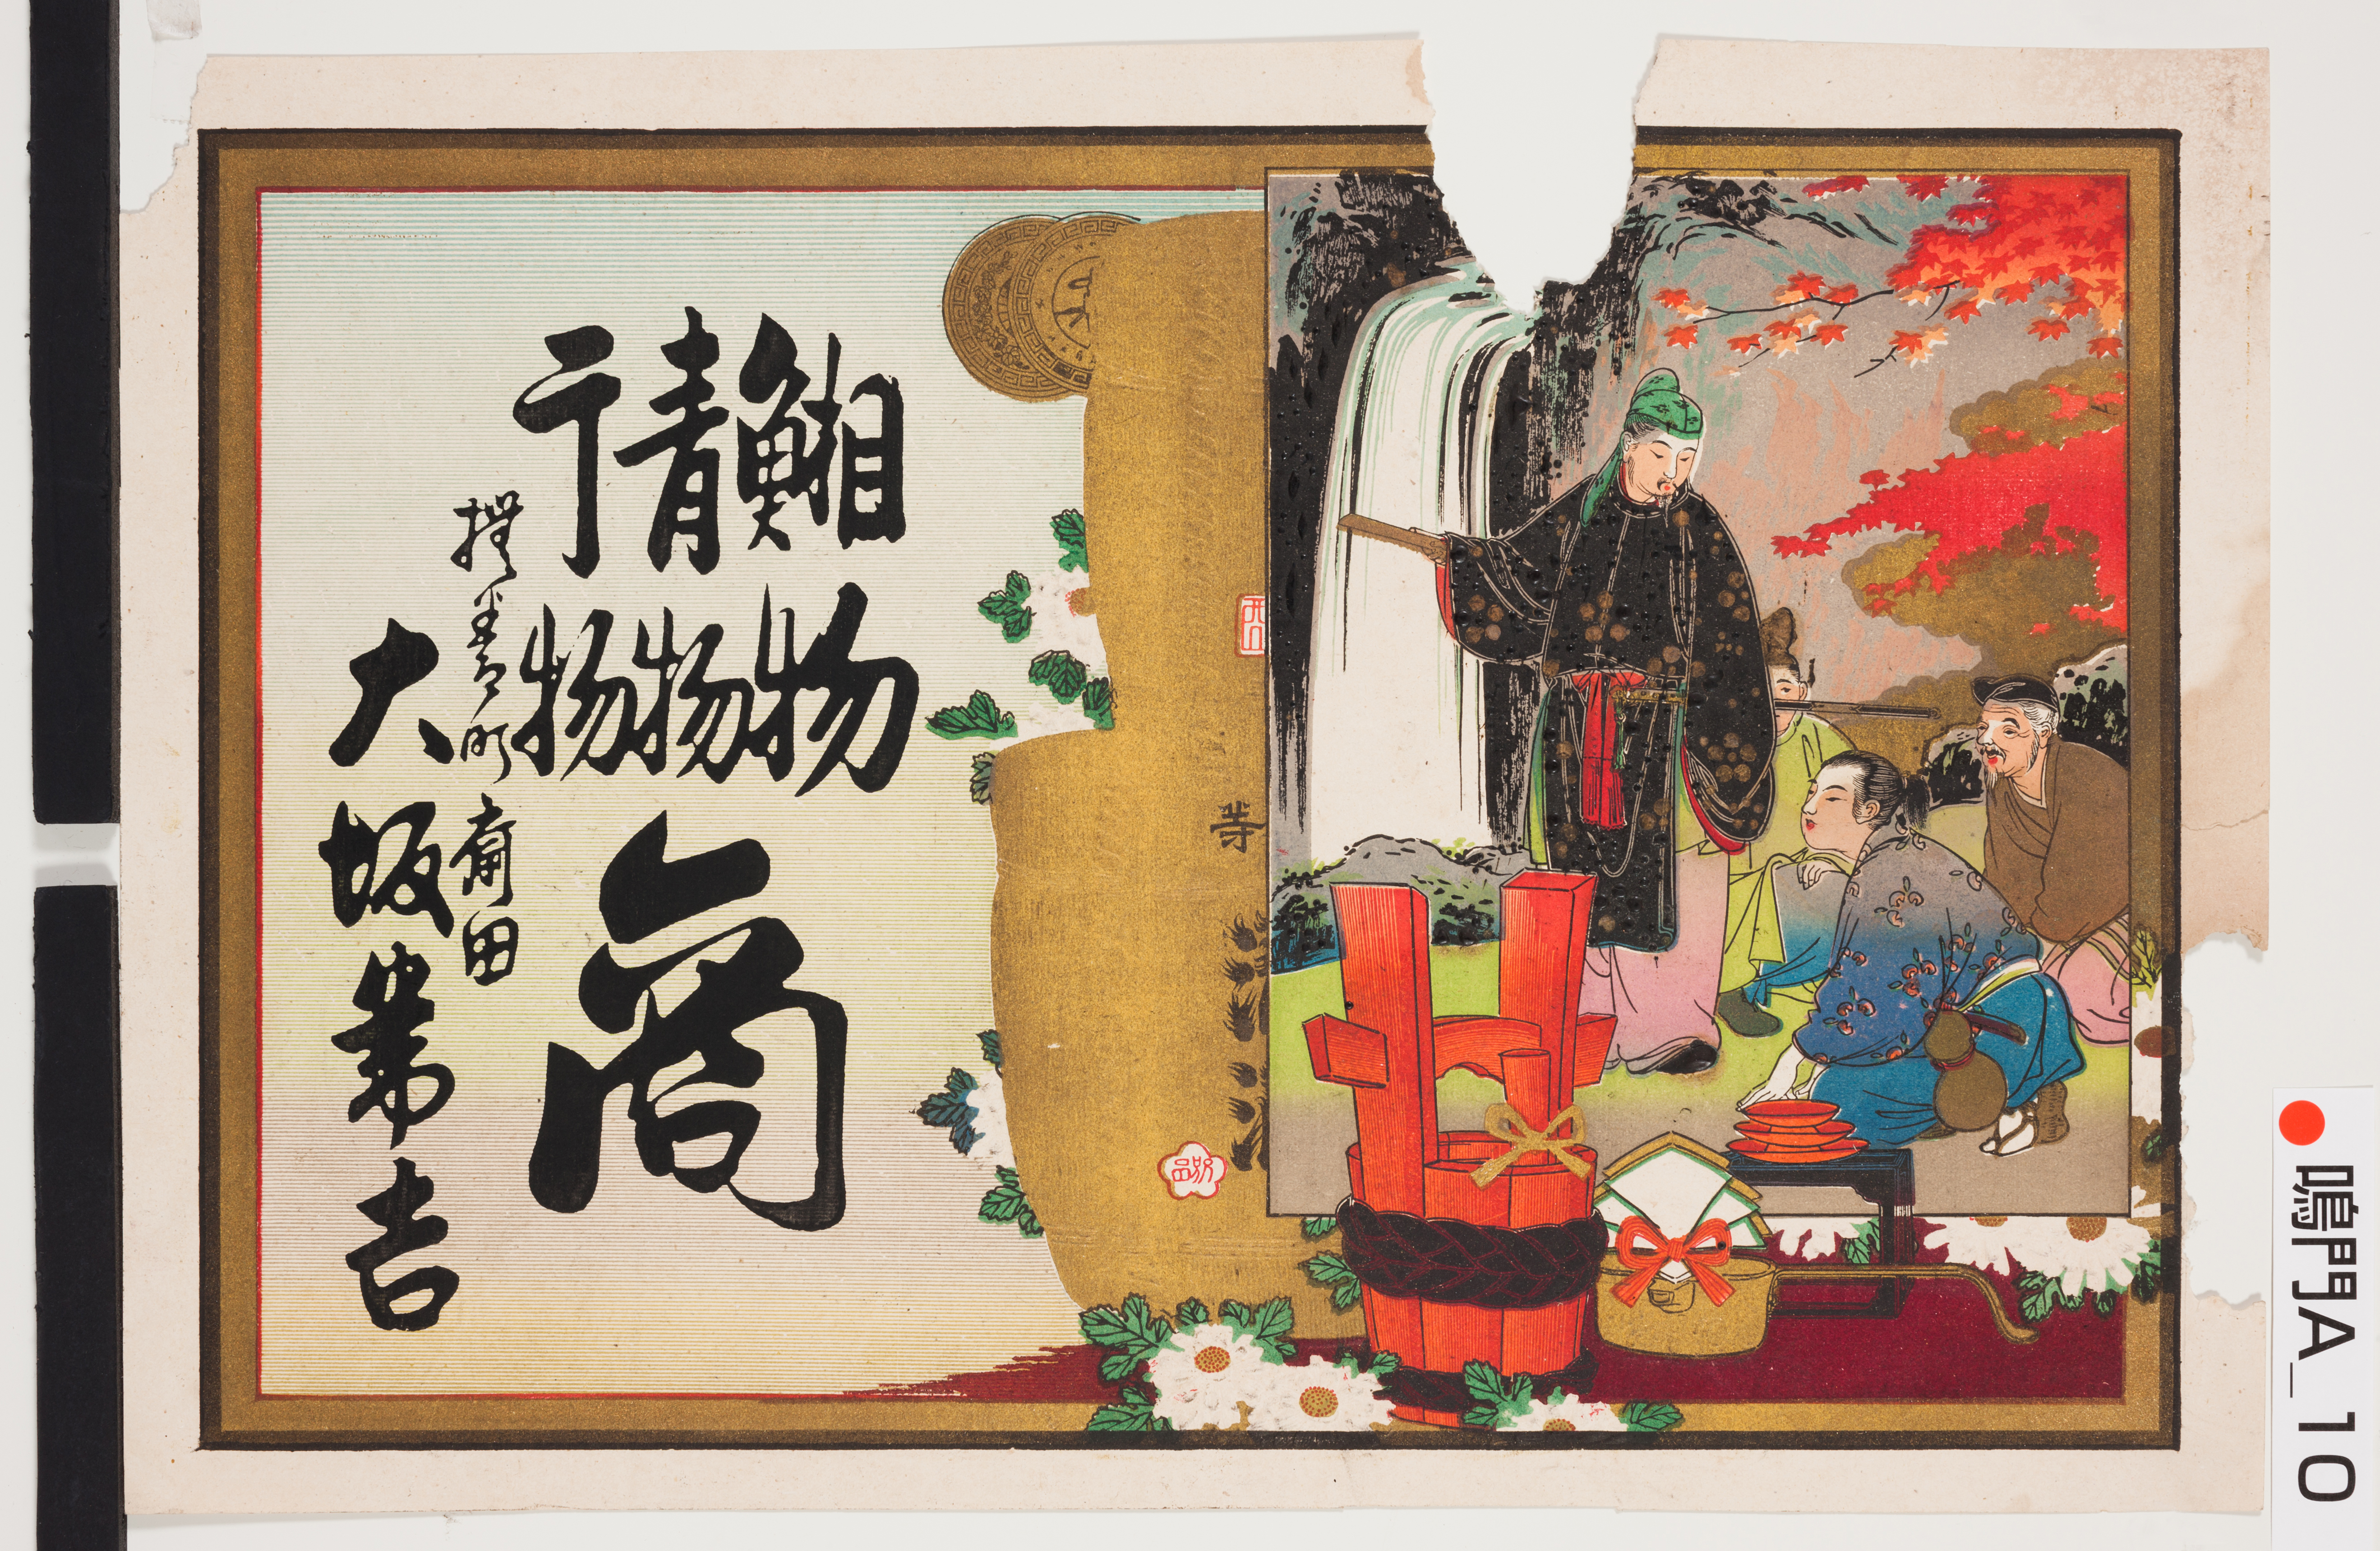 物
青物
干物
商
撫養町斎田
大坂常吉
等
鳴門A_10